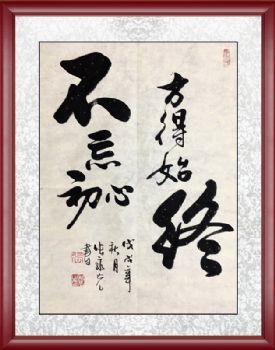 方得始终
不忘初心
戊戌年
秋月